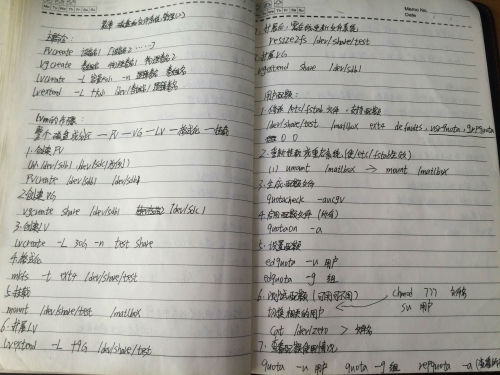 Memo No.
Date
第章 磁盘的文件系统管理(2)
pvcreate
vgcreate 卷组名 物理卷名1 物理卷名2
lvcreate -L 容量 -n 逻辑卷名 卷组名
lvextend -L +大小 /dev/卷组名/逻辑卷名
lvm的步骤:
整个磁盘或分区 — PV — VG — LV — 格式化 — 挂载
1. 创建PV
pvcreate /dev/sdb1 /dev/sdc1
2. 创建VG
vgcreate share /dev/sdb1 /dev/sdc1
3. 创建LV
lvcreate -L 30G -n test share
4. 格式化
mkfs -t ext4 /dev/share/test
5. 挂载
mount /dev/share/test /mailbox
6. 扩展LV
lvextend -L +9G /dev/share/test
resize2fs /dev/share/test
扩展VG
vgextend share /dev/sdb1
用户配额:
1. 修改 /etc/fstab 文件, 支持配额
/dev/share/test /mailbox ext4 defaults,usrquota,grpquota
0 0
2. 重新挂载或重启系统 (使/etc/fstab生效)
(1) umount /mailbox → mount /mailbox
3. 生成配额文件
quotacheck -augcv
4. 启用配额文件
quotaon -a
5. 设置配额
edquota -u 用户
edquota -g 组
6. 测试配额
chmod 777 文件名
切换相关的用户
su 用户
cat /dev/zero > 文件名
7. 查看配额使用情况
quota -u 用户 quota -g 组 repquota -a